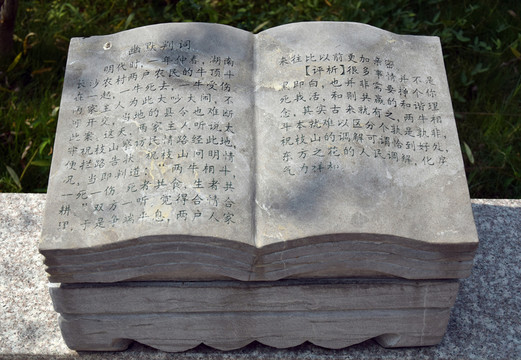 幽默判词
明代时，一年仲春，湖南
长沙农村两户农民的牛顶斗
在一起，一牛死去，一牛受伤，
两家主人为此大吵大闹，不
可开交，当地的县令也难断
此案。这天，两家主人听说太
守祝枝山察访民情路经此地，
便拦路告状。祝枝山问明情
况，当即判道：“两牛相斗，
一死一伤。死者共食，生者共
耕。”双方一听，觉得合情合
理，于是争端平息，两户人家
来往比以前更加亲密。
【评析】很多事情并不是
非黑即白，也并非需要捧个你
死我活，和则共赢的和谐理
念，其实古来就有之。两牛相
斗本就难以区分个孰是孰非，
祝枝山的调解可谓恰到好处，
东方之花的人民调解，化戾
气为祥和。